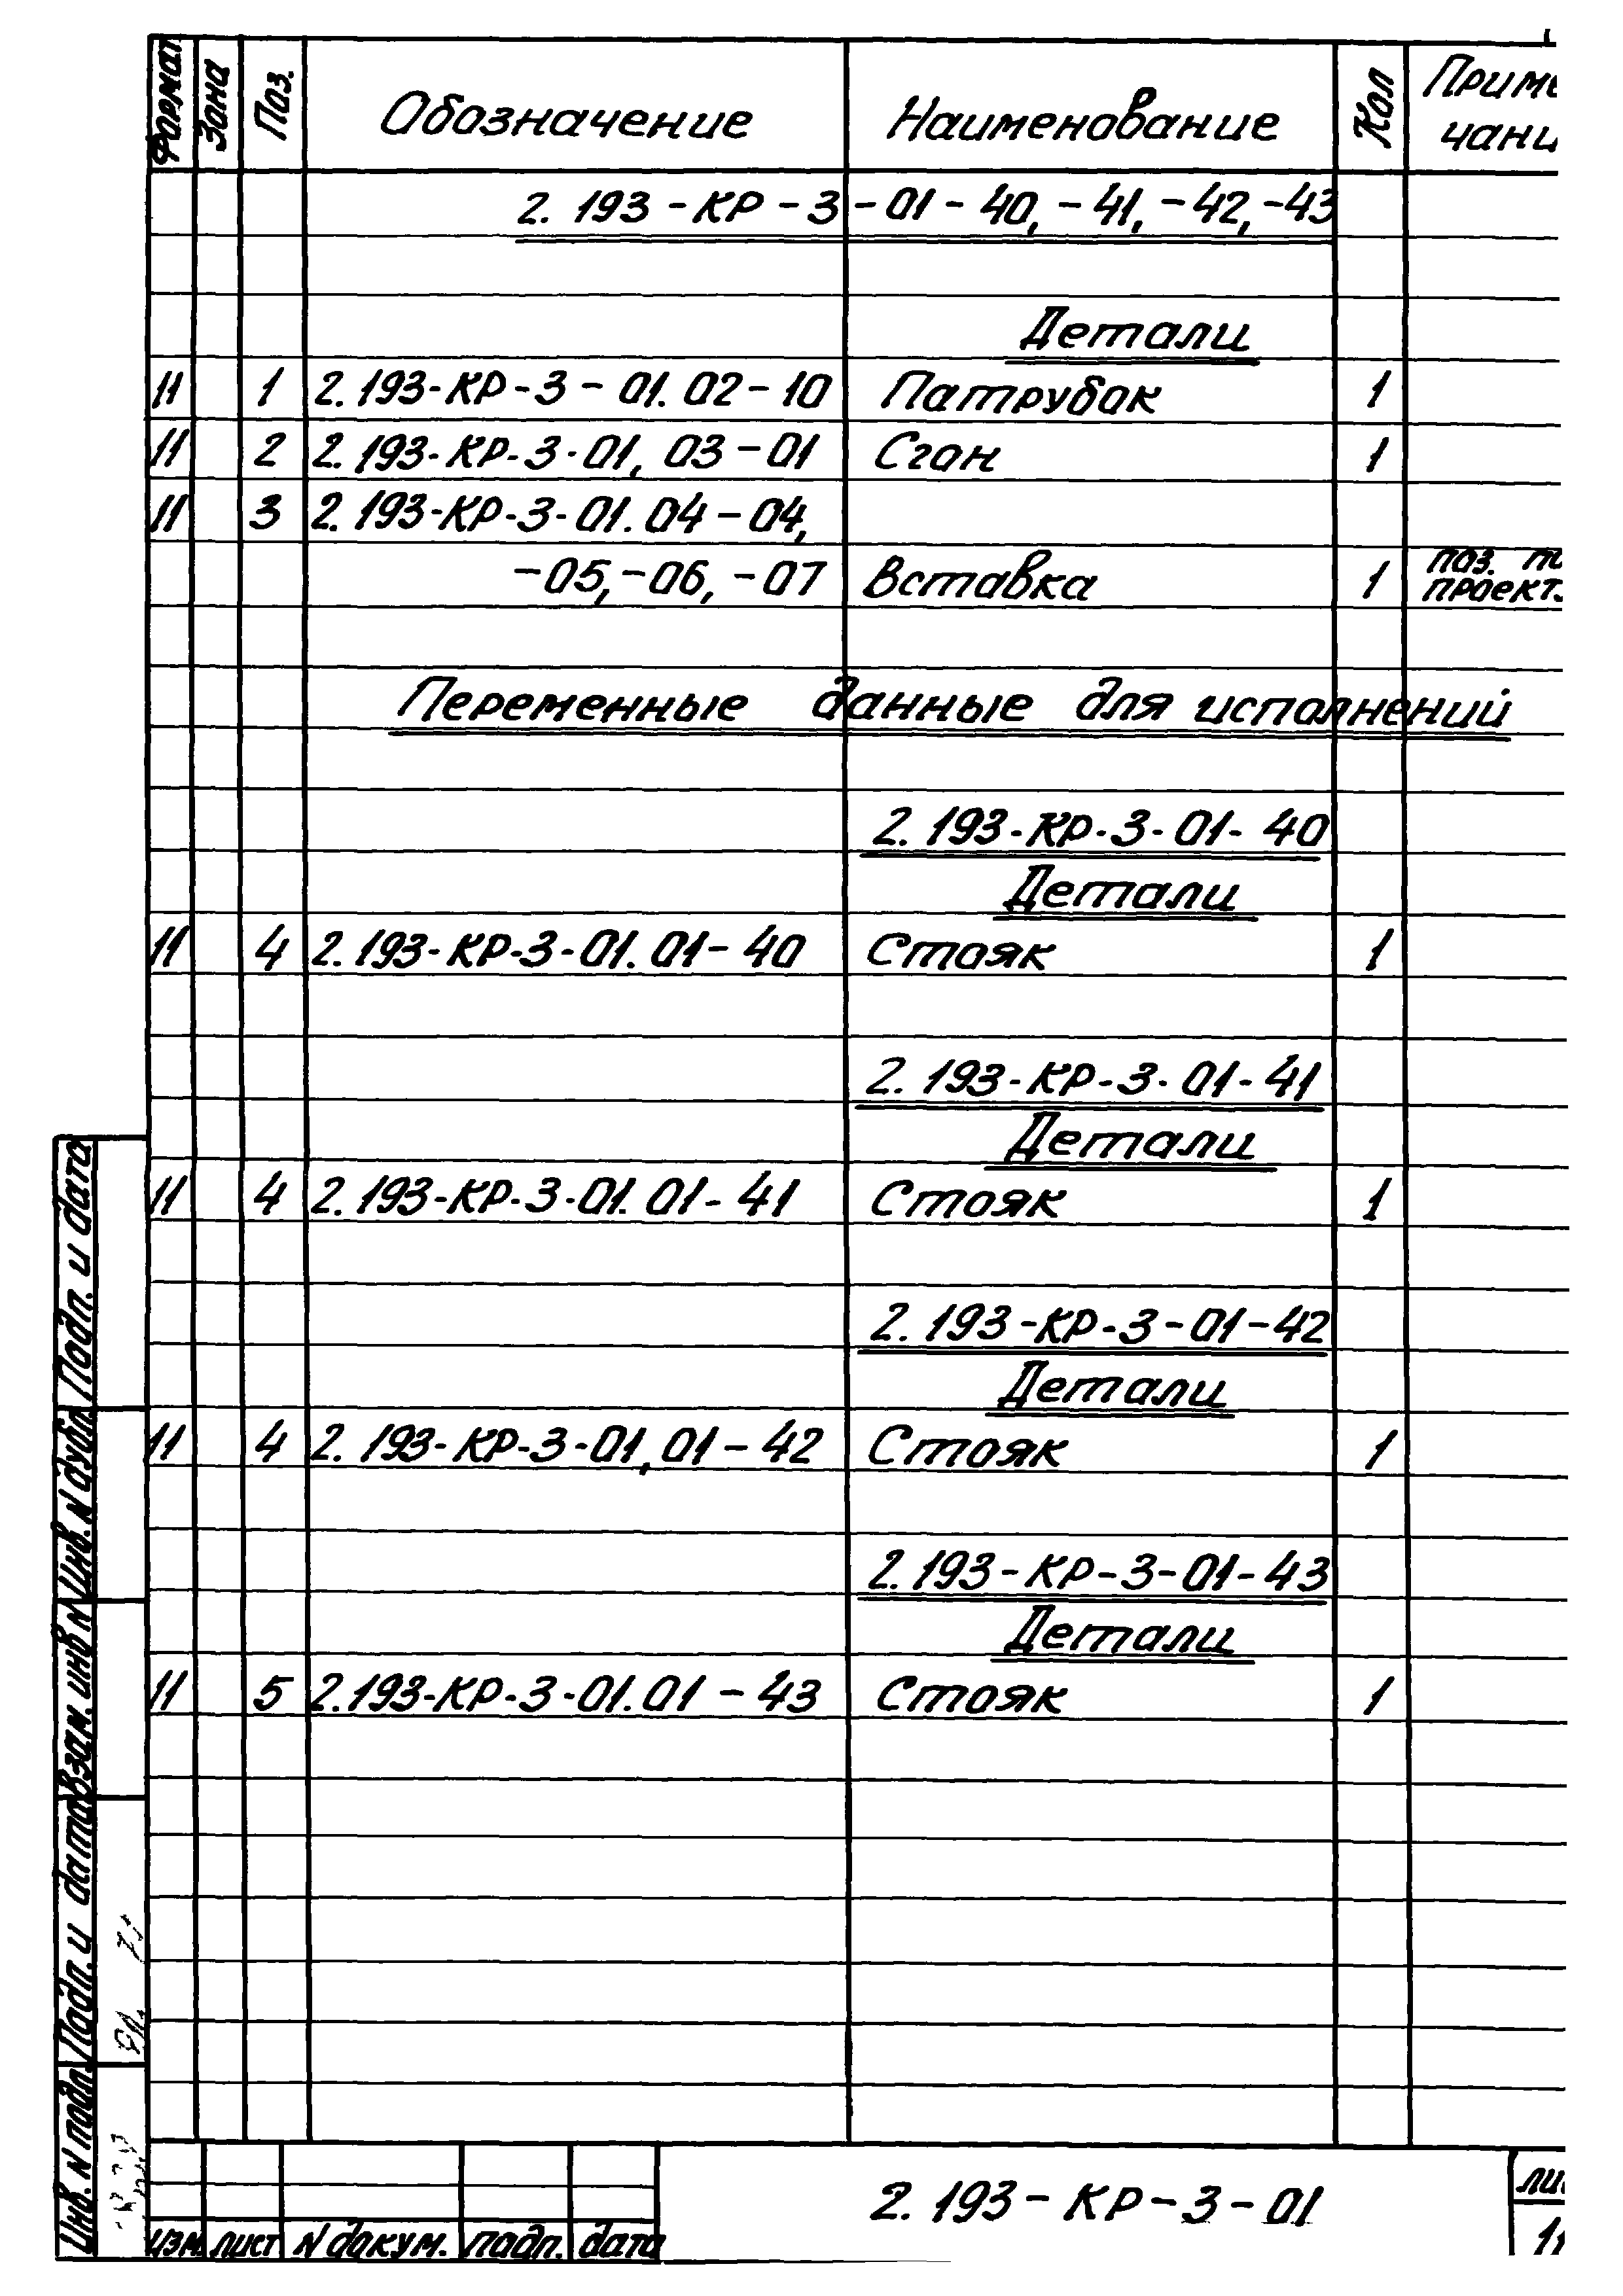 Формат Зона Поз. Обозначение Наименование Кол Приме
чани
2. 193 - КР - 3 - 01 - 40, - 41, - 42, - 43
Детали
11 1 2. 193 - КР - 3 - 01. 02 - 10 Патрубок 1
11 2 2. 193 - КР - 3 - 01, 03 - 01 Сгон 1
11 3 2. 193 - КР - 3 - 01. 04 - 04,
- 05, - 06, - 07 Вставка 1 поз. по
проект.
Переменные данные для исполнений
2. 193 - КР - 3 - 01 - 40
Детали
11 4 2. 193 - КР - 3 - 01. 01 - 40 Стояк 1
2. 193 - КР - 3 - 01 - 41
Детали
11 4 2. 193 - КР - 3 - 01. 01 - 41 Стояк 1
2. 193 - КР - 3 - 01 - 42
Детали
11 4 2. 193 - КР - 3 - 01, 01 - 42 Стояк 1
2. 193 - КР - 3 - 01 - 43
Детали
11 5 2. 193 - КР - 3 - 01. 01 - 43 Стояк 1
Подп. и дата
Инв. N дубл.
Взам. инв N
Подп. и дата
Инв. N подл.
2. 193 - КР - 3 - 01
ли
11
изм. лист N докум. подп. дата